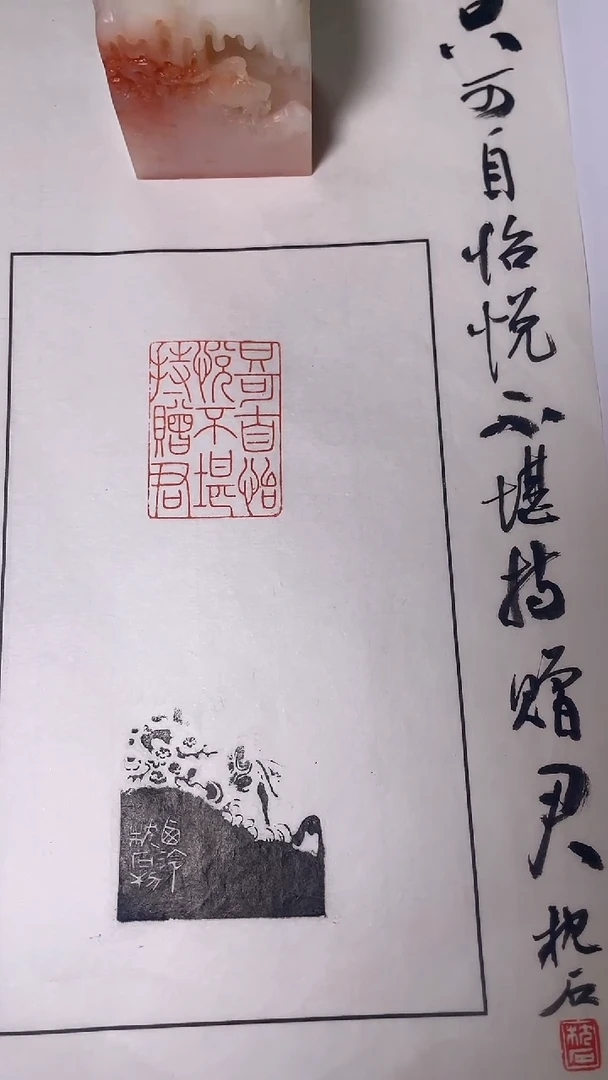 只可自怡悦不堪持赠君 枕石
只可自怡
悦不堪
持贈君
枕石